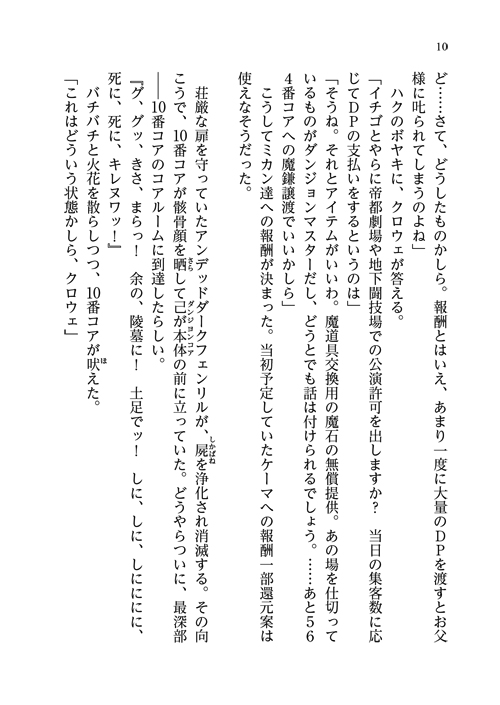 10
ど……さて、どうしたものかしら。報酬とはいえ、あまり一度に大量のＤＰを渡すとお父
様に叱られてしまうのよね」
ハクのボヤキに、クロウェが答える。
「イチゴとやらに帝都劇場や地下闘技場での公演許可を出しますか？　当日の集客数に応
じてＤＰの支払いをするというのは」
「そうね。それとアイテムがいいわ。魔道具交換用の魔石の無償提供。あの場を仕切って
いるものがダンジョンマスターだし、どうとでも話は付けられるでしょう。……あと５６
４番コアへの魔鎌譲渡でいいかしら」
こうしてミカン達への報酬が決まった。当初予定していたケーマへの報酬一部還元案は
使えなそうだった。
荘厳な扉を守っていたアンデッドダークフェンリルが、屍を浄化され消滅する。その向
こうで、10番コアが骸骨顔を晒して己が本体の前に立っていた。どうやらついに、最深部
――10番コアのコアルームに到達したらしい。
『グ、グッ、きさ、まらっ！　余の、陵墓に！　土足でッ！　しに、しに、しにににに、
死に、死に、キレヌワッ！』
バチバチと火花を散らしつつ、10番コアが吠えた。
「これはどういう状態かしら、クロウェ」